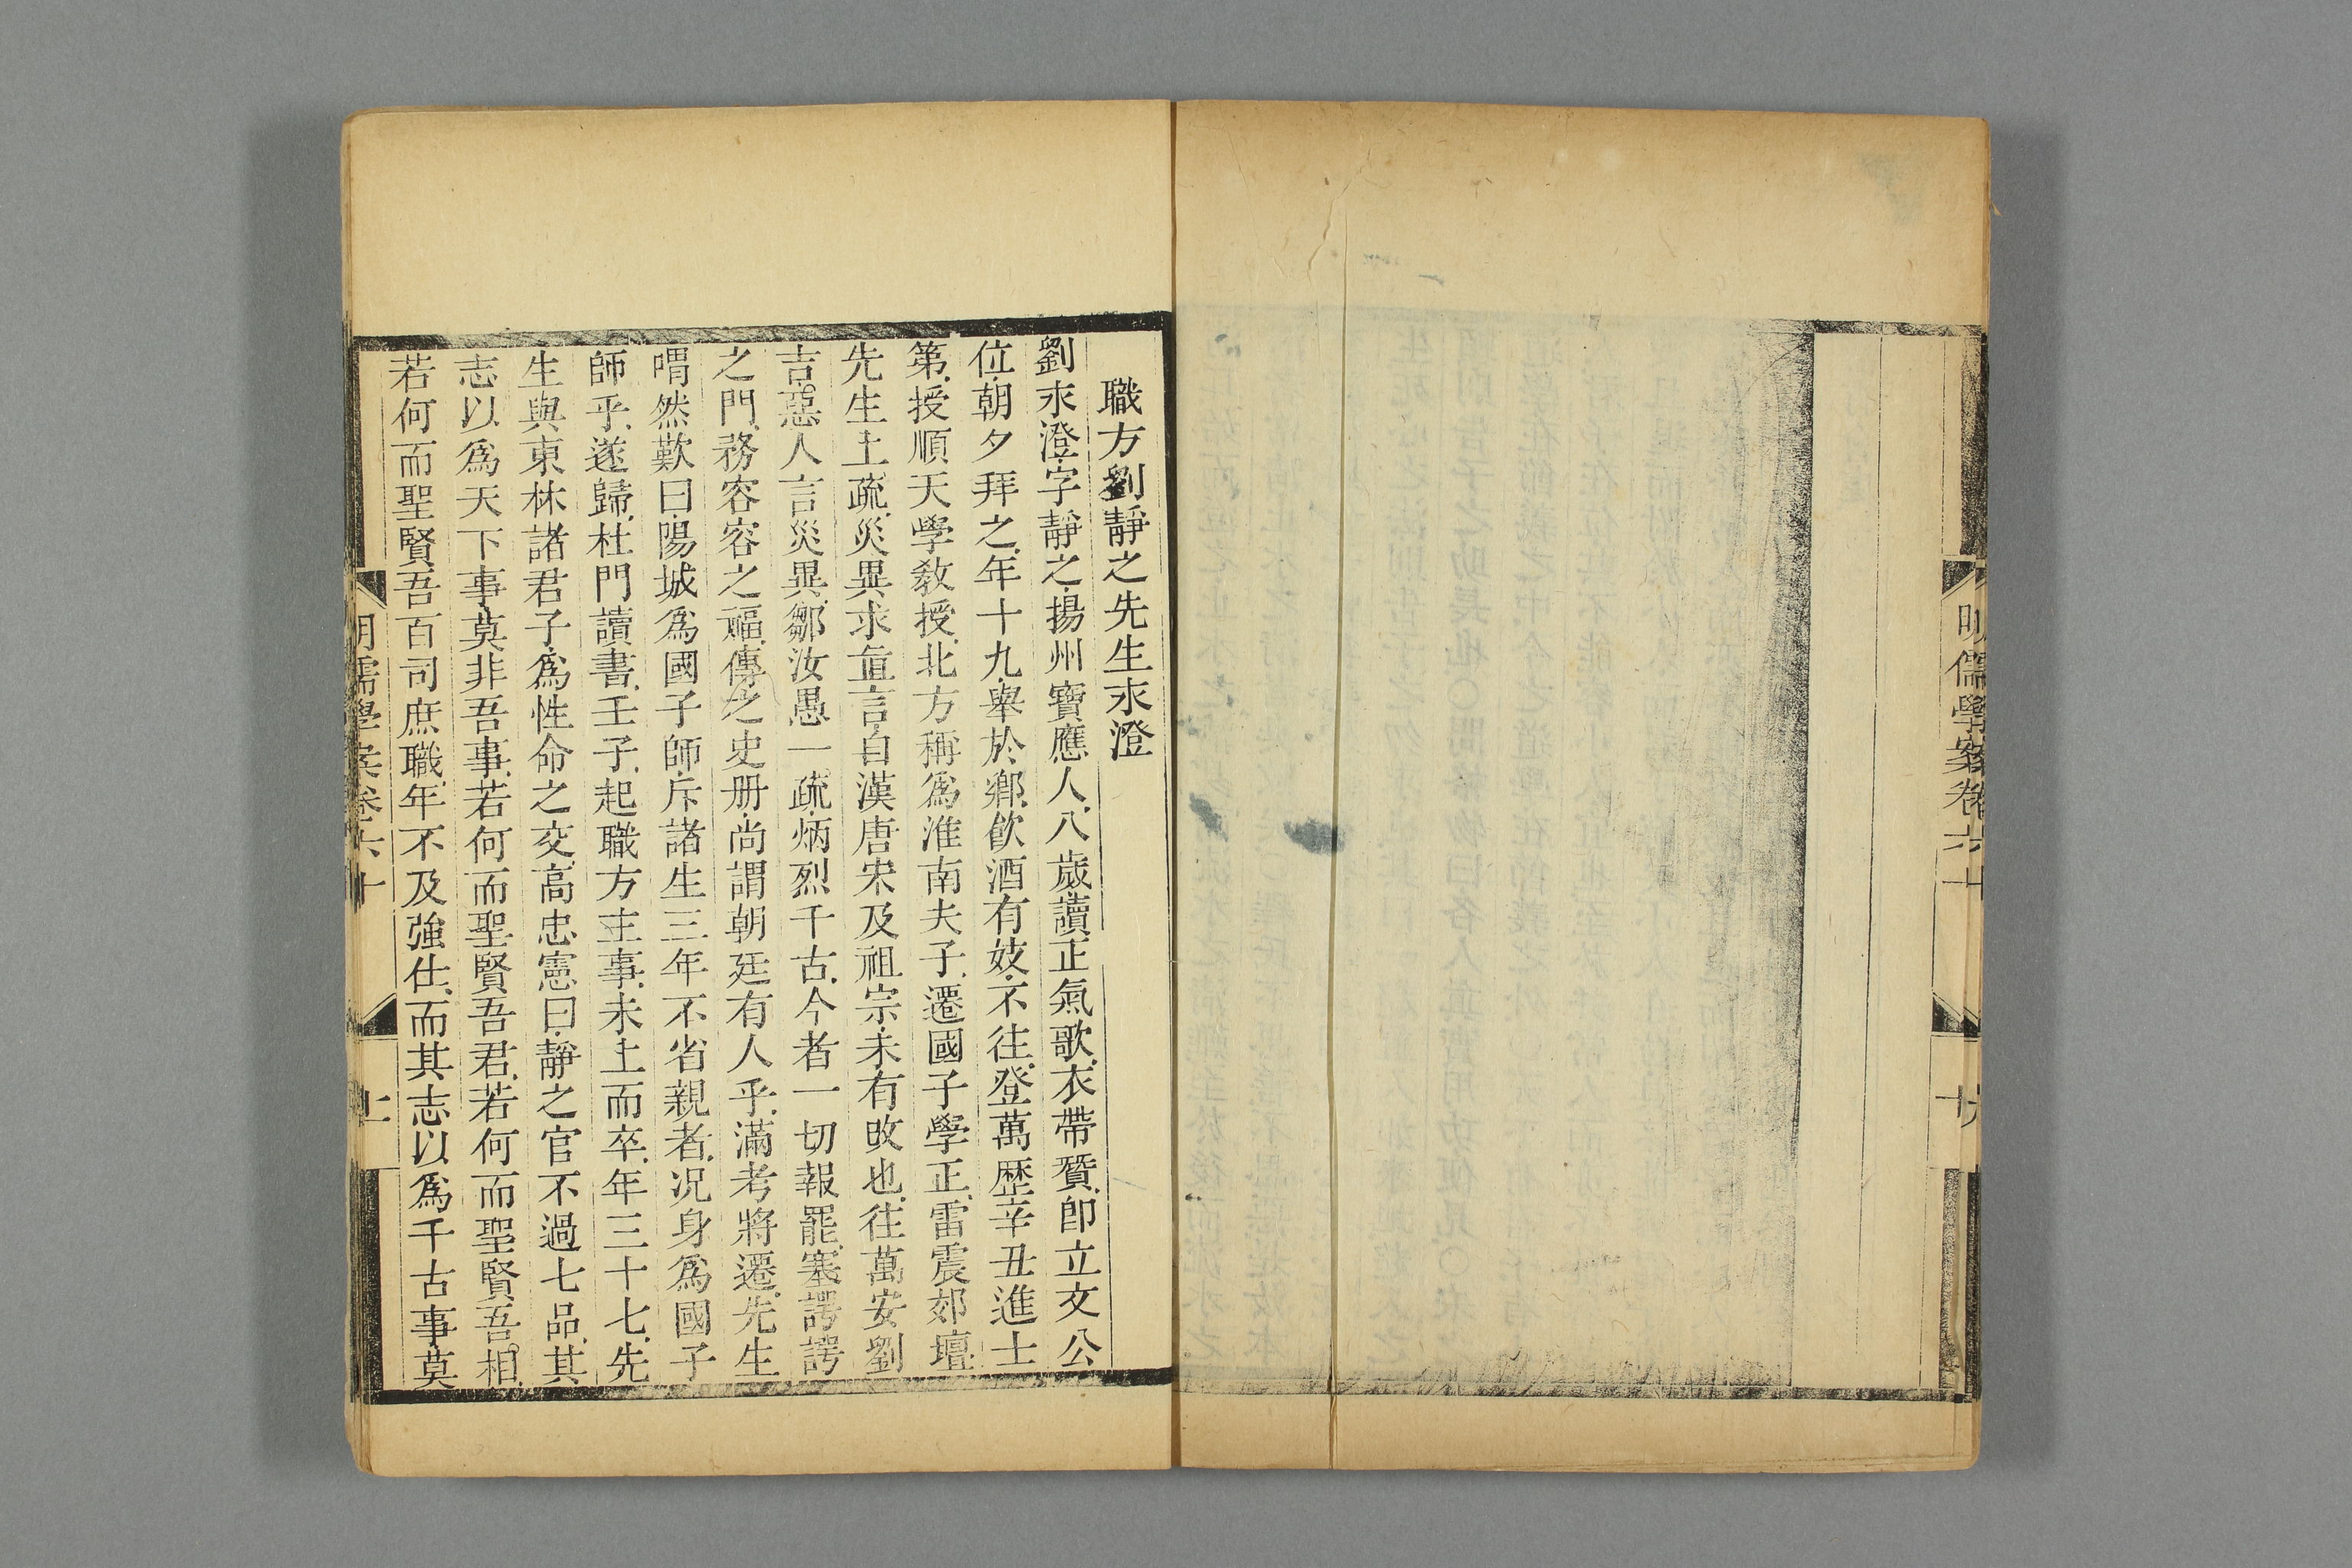 明儒學案卷六十
職方劉靜之先生永澄
劉永澄字靜之揚州寶應人八歲讀正氣歌衣帶贊卽立文公
位朝夕拜之年十九舉於鄕飮酒有妓不往登萬歷辛丑進士
第授順天學教授北方稱爲淮南夫子遷國子學正雷震郊壇
先生上疏災異求直言自漢唐宋及祖宗未有改也往萬安劉
吉惡人言災異鄒汝愚一疏炳烈千古今者一切報罷塞諤諤
之門務容容之福傳之史册尚謂朝廷有人乎滿考將遷先生
喟然歎曰陽城爲國子師斥諸生三年不省親者况身爲國子
師乎遂歸杜門讀書壬子起職方主事未上而卒年三十七先
生與東林諸君子爲性命之交高忠憲曰靜之官不過七品其
志以爲天下事莫非吾事若何而聖賢吾君若何而聖賢吾相
若何而聖賢吾百司庶職年不及強仕而其志以爲千古事莫
明儒學案卷六十